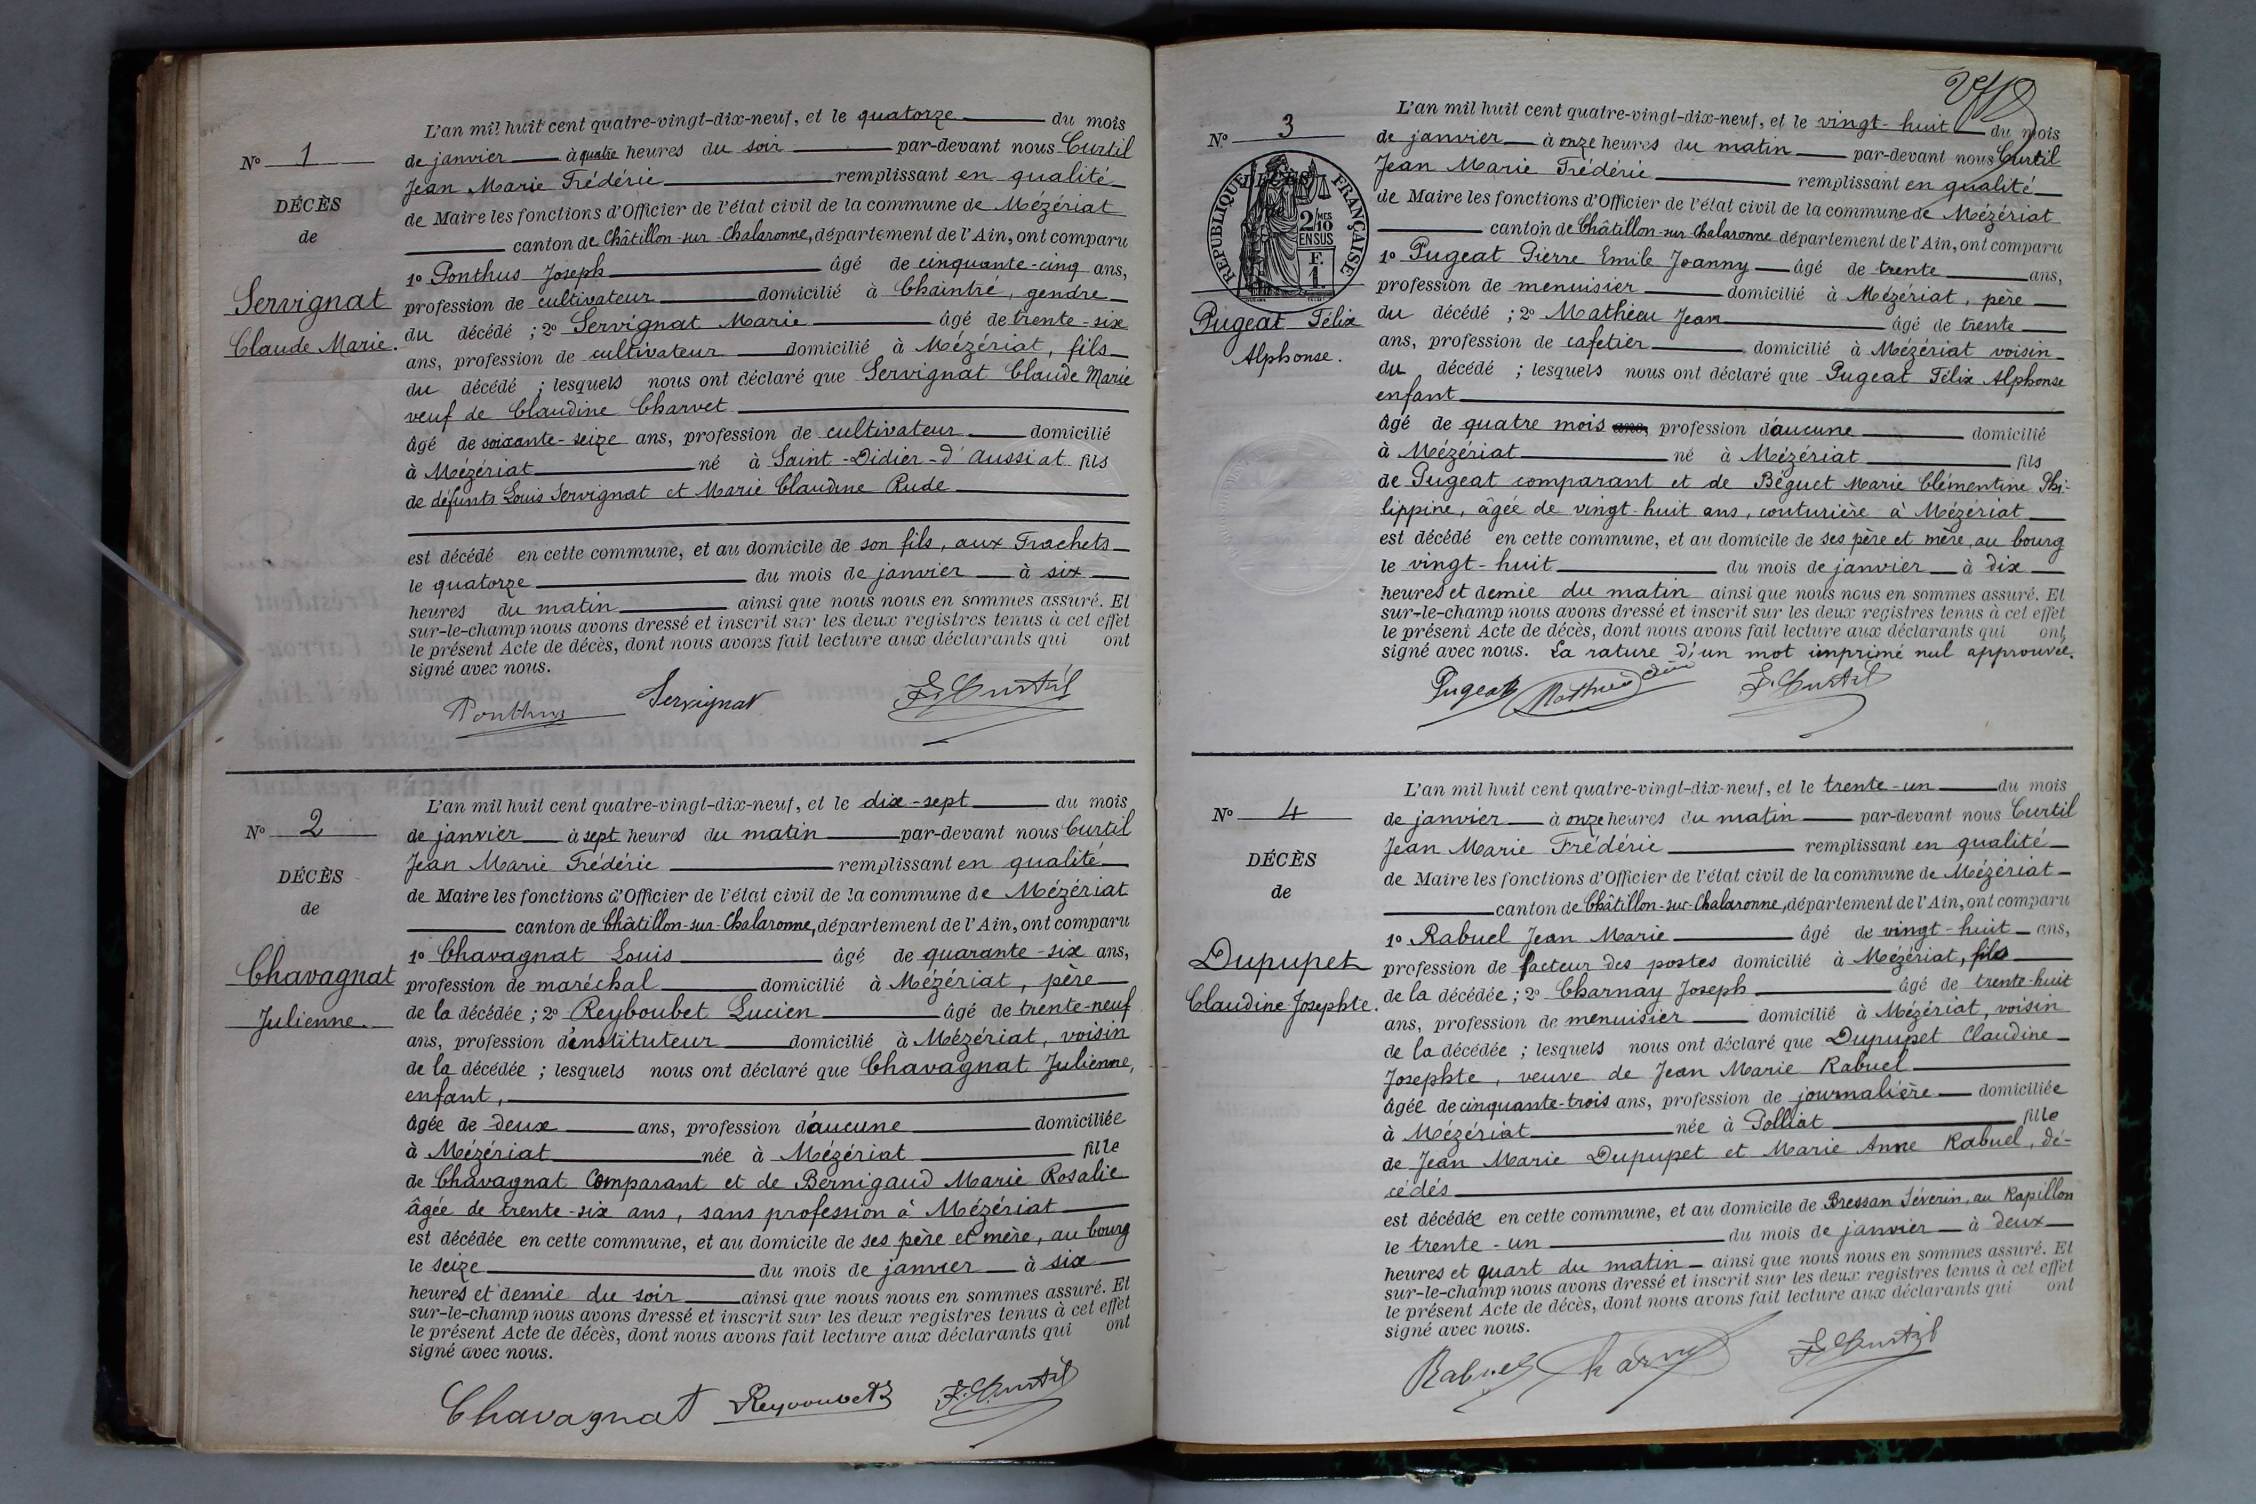 L'an mil huit cent quatre-vingt-dix-neuf, et le quatorze du mois
N° 1
de janvier à quatre heures du soir par-devant nous Curtil
Jean Marie Frédéric remplissant en qualité
DÉCÈS
de Maire les fonctions d'Officier de l'état civil de la commune de Mézériat
de
canton de Châtillon-sur-Chalaronne, département de l'Ain, ont comparu
1° Ponthus Joseph âgé de cinquante-cinq ans,
Servignat
profession de cultivateur domicilié à Chaintre, gendre
du décédé ; 2° Servignat Marie âgé de trente-six
Claude Marie.
ans, profession de cultivateur domicilié à Mézériat, fils
du décédé ; lesquels nous ont déclaré que Servignat Claude Marie
veuf de Claudine Charvet
âgé de soixante-seize ans, profession de cultivateur domicilié
à Mézériat né à Saint-Didier-d'Aussiat fils
de défunts Louis Servignat et Marie Claudine Rude
est décédé en cette commune, et au domicile de son fils, aux Trachets
le quatorze du mois de janvier à six
heures du matin ainsi que nous nous en sommes assuré. Et
sur-le-champ nous avons dressé et inscrit sur les deux registres tenus à cet effet
le présent Acte de décès, dont nous avons fait lecture aux déclarants qui ont
signé avec nous.
Ponthus Servignat F. Curtil
L'an mil huit cent quatre-vingt-dix-neuf, et le dix-sept du mois
N° 2
de janvier à sept heures du matin par-devant nous Curtil
Jean Marie Frédéric remplissant en qualité
DÉCÈS
de Maire les fonctions d'Officier de l'état civil de la commune de Mézériat
de
canton de Châtillon-sur-Chalaronne, département de l'Ain, ont comparu
1° Chavagnat Louis âgé de quarante-six ans,
Chavagnat
profession de maréchal domicilié à Mézériat, père
de la décédée ; 2° Reyboubet Lucien âgé de trente-neuf
Julienne.
ans, profession d'instituteur domicilié à Mézériat, voisin
de la décédée ; lesquels nous ont déclaré que Chavagnat Julienne,
enfant,
âgée de deux ans, profession d'aucune domiciliée
à Mézériat née à Mézériat fille
de Chavagnat Comparant et de Bernigaud Marie Rosalie
âgée de trente-six ans, sans profession à Mézériat
est décédée en cette commune, et au domicile de ses père et mère, au bourg
le seize du mois de janvier à six
heures et demie du soir ainsi que nous nous en sommes assuré. Et
sur-le-champ nous avons dressé et inscrit sur les deux registres tenus à cet effet
le présent Acte de décès, dont nous avons fait lecture aux déclarants qui ont
signé avec nous.
Chavagnat Reyboubet F. Curtil
L'an mil huit cent quatre-vingt-dix-neuf, et le vingt-huit du mois
N° 3
de janvier à onze heures du matin par-devant nous Curtil
Jean Marie Frédéric remplissant en qualité
DÉCÈS
RÉPUBLIQUE FRANÇAISE
2/10 MES
EN SUS
F.
1.
de Maire les fonctions d'Officier de l'état civil de la commune de Mézériat
canton de Châtillon-sur-Chalaronne département de l'Ain, ont comparu
1° Pugeat Pierre Emile Joanny âgé de trente ans,
profession de menuisier domicilié à Mézériat, père
Pugeat Félix
du décédé ; 2° Mathieu Jean âgé de trente
Alphonse.
ans, profession de cafetier domicilié à Mézériat voisin
du décédé ; lesquels nous ont déclaré que Pugeat Félix Alphonse
enfant
âgé de quatre mois ans, profession d'aucune domicilié
à Mézériat né à Mézériat fils
de Pugeat comparant et de Béguet Marie Clémentine Phi-
lippine, âgée de vingt-huit ans, couturière à Mézériat
est décédé en cette commune, et au domicile de ses père et mère, au bourg
le vingt-huit du mois de janvier à dix
heures et demie du matin ainsi que nous nous en sommes assuré. Et
sur-le-champ nous avons dressé et inscrit sur les deux registres tenus à cet effet
le présent Acte de décès, dont nous avons fait lecture aux déclarants qui ont
signé avec nous. La rature d'un mot imprimé nul approuvée.
Pugeat Mathieu F. Curtil
L'an mil huit cent quatre-vingt-dix-neuf, et le trente-un du mois
N° 4
de janvier à onze heures du matin par-devant nous Curtil
Jean Marie Frédéric remplissant en qualité
DÉCÈS
de Maire les fonctions d'Officier de l'état civil de la commune de Mézériat
de
canton de Châtillon-sur-Chalaronne, département de l'Ain, ont comparu
1° Rabuel Jean Marie âgé de vingt-huit ans,
Dupupet
profession de facteur des postes domicilié à Mézériat, fils
Claudine Josephte.
de la décédée ; 2° Charnay Joseph âgé de trente-huit
ans, profession de menuisier domicilié à Mézériat, voisin
de la décédée ; lesquels nous ont déclaré que Dupupet Claudine
Josephte, veuve de Jean Marie Rabuel
âgée de cinquante-trois ans, profession de journalière domiciliée
à Mézériat née à Polliat fille
de Jean Marie Dupupet et Marie Anne Rabuel, dé-
cédés
est décédée en cette commune, et au domicile de Bressan Séverin, au Rapillon
le trente-un du mois de janvier à deux
heures et quart du matin ainsi que nous nous en sommes assuré. Et
sur-le-champ nous avons dressé et inscrit sur les deux registres tenus à cet effet
le présent Acte de décès, dont nous avons fait lecture aux déclarants qui ont
signé avec nous.
Rabuel Charnay F. Curtil